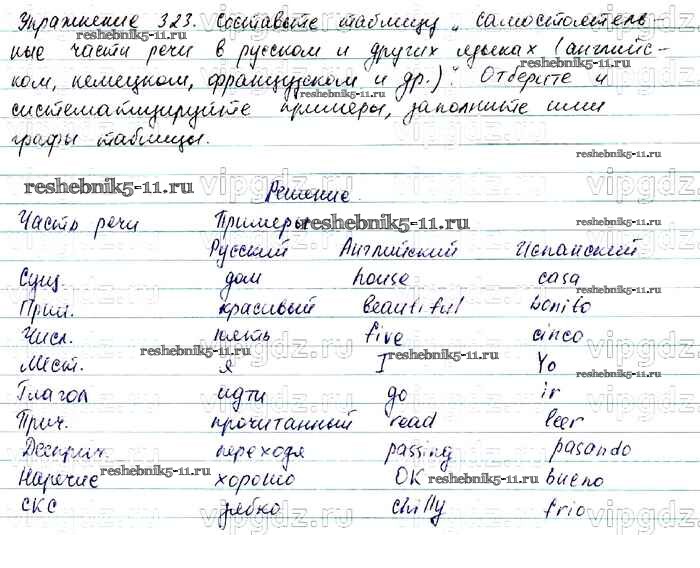 Упражнение 323. Составьте таблицу „Самостоятель-
ные части речи в русском и других языках (английс-
ком, немецком, французском и др.)". Отберите и
систематизируйте примеры, заполните ими
графы таблицы.
Решение.
Часть речи Примеры
Русский Английский Испанский
Сущ. дом house casa
Прил. красивый beautiful bonito
Числ. пять five cinco
Мест. я I Yo
Глагол идти go ir
Прич. прочитанный read leer
Дееприч. переходя passing pasando
Наречие хорошо OK bueno
СКС зябко chilly frio
reshebnik5-11.ru
vipgdz.ru